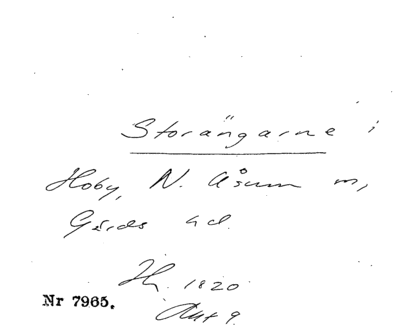 Storängarne i
Hoby, N. Åsum m,
Gärds hd.
1820
Nr 7965.
Akt 9.